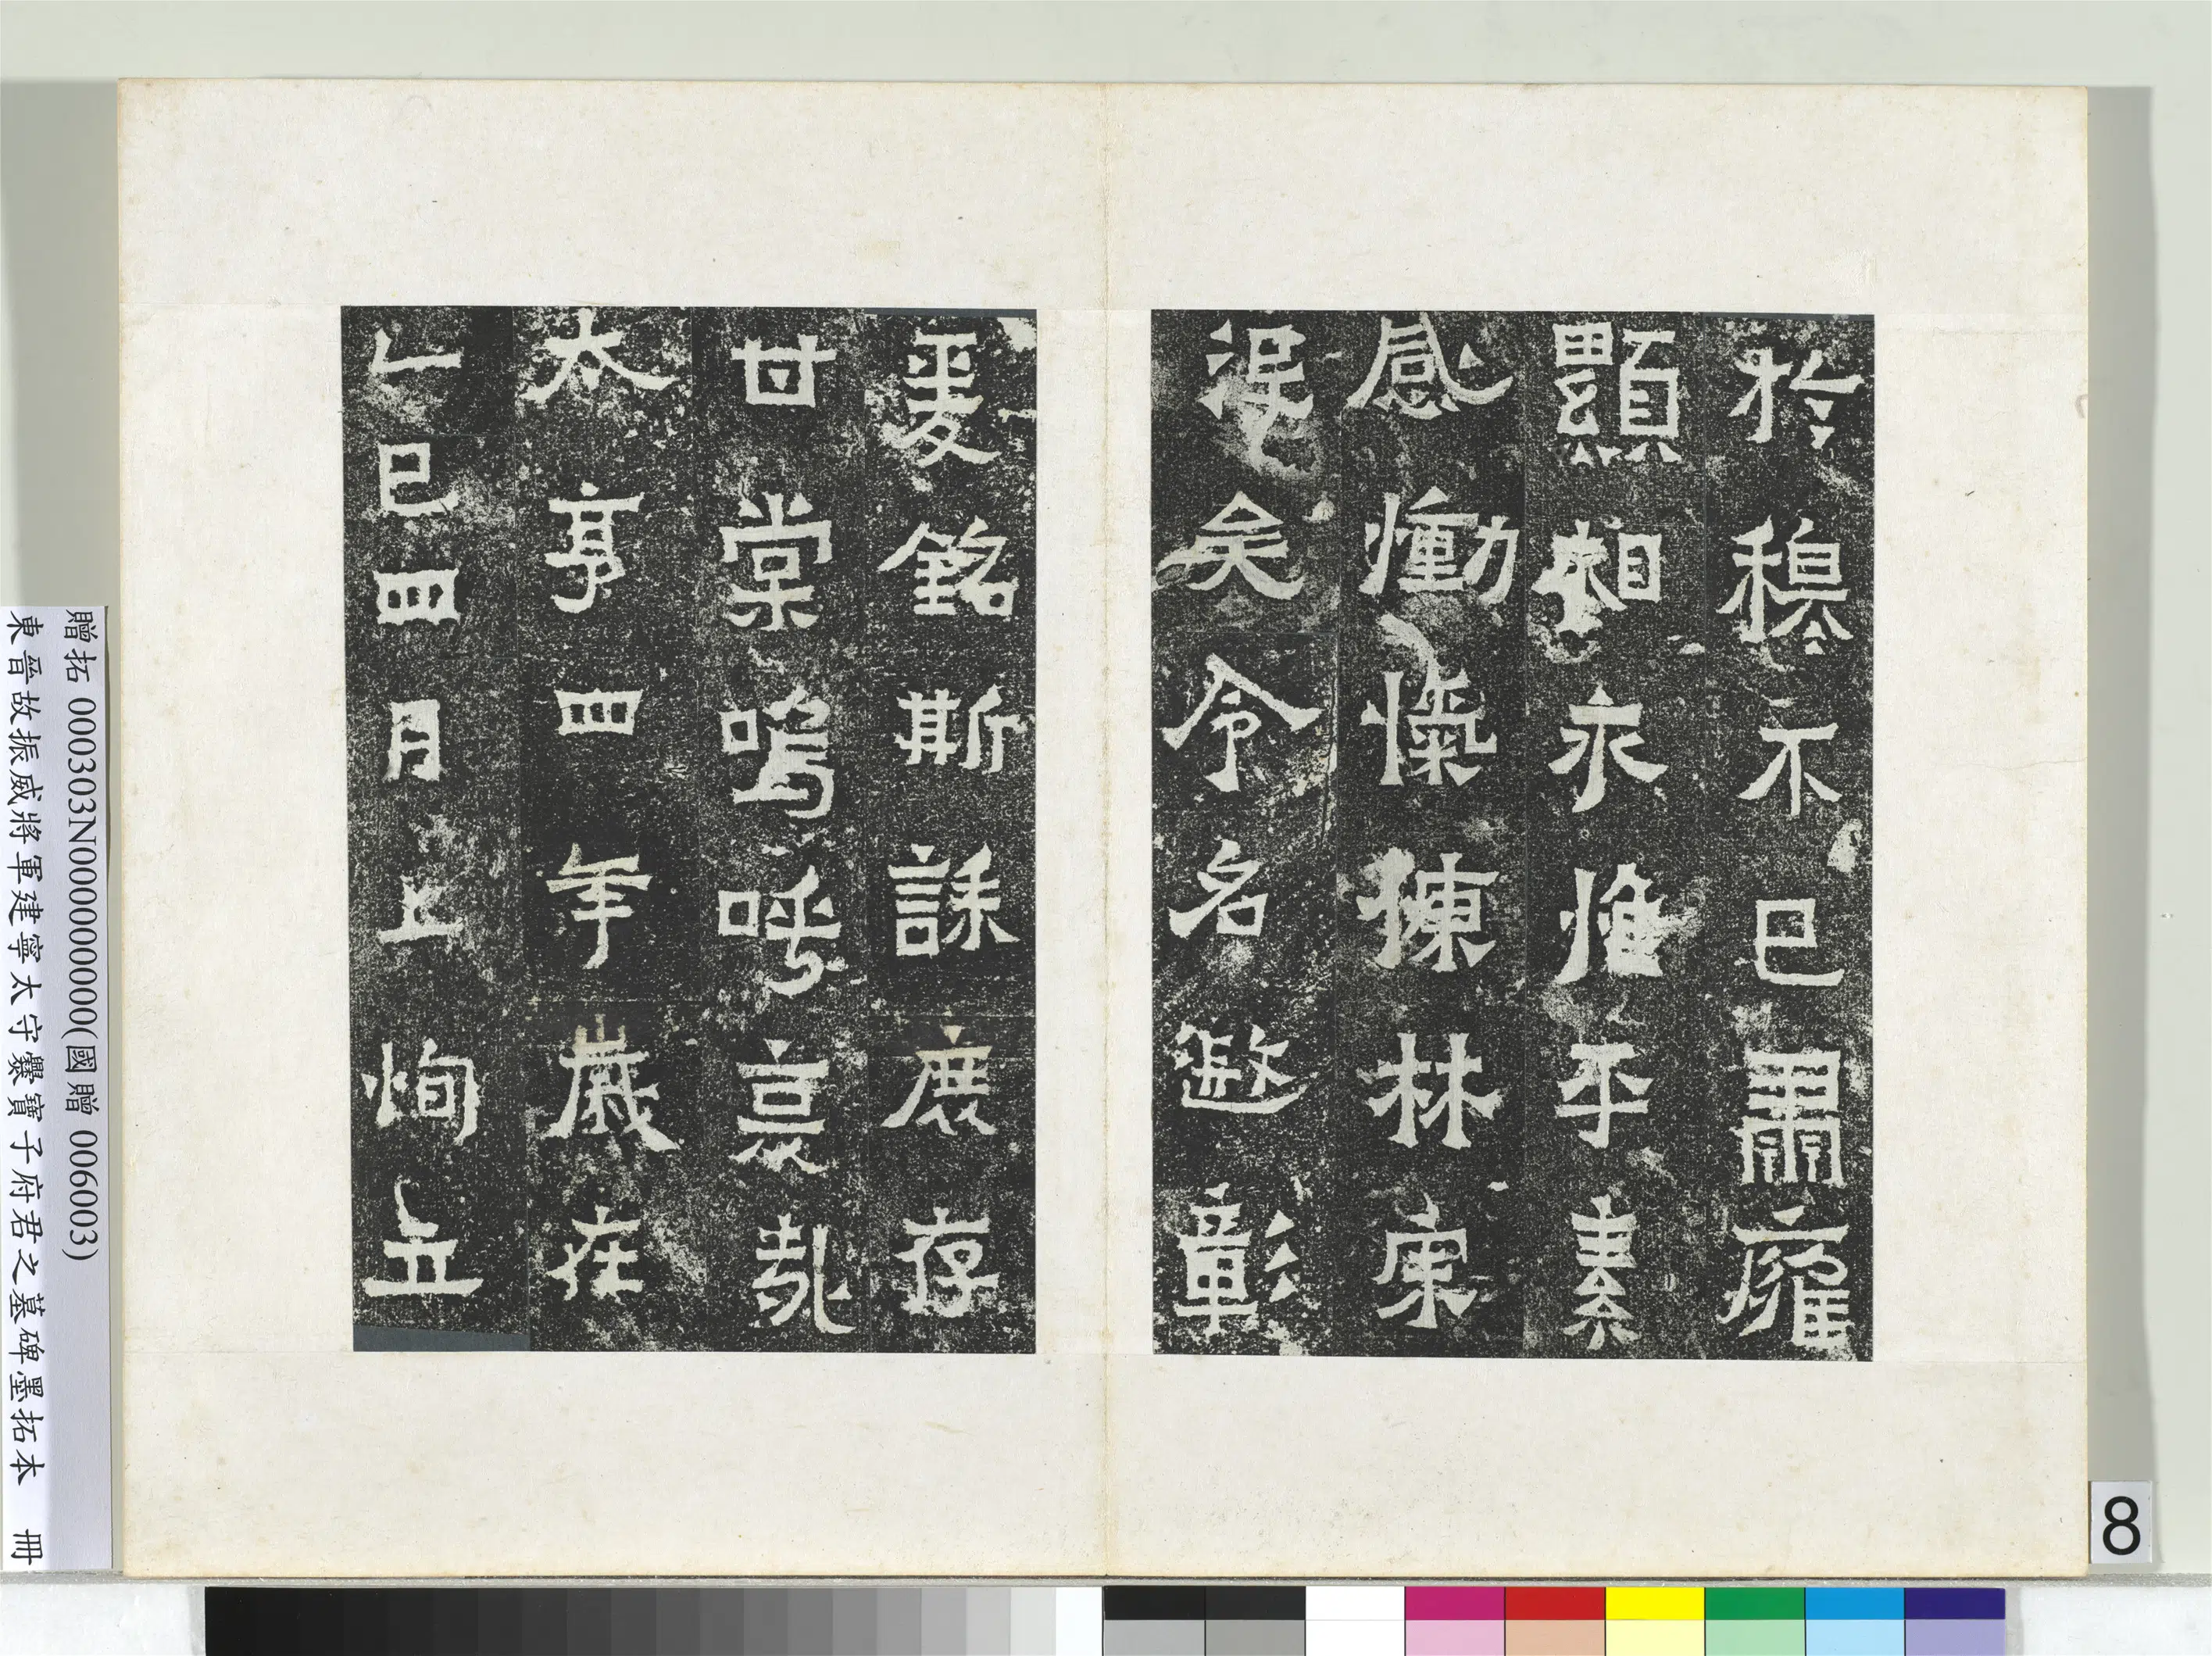 於穆不已肅雍
顯相永惟平素
感慟愾揀林宗
沒矣令名遐彰
爰銘斯誄庶存
甘棠嗚呼哀哉
太亨四年歲在
乙巳四月上恂立
贈拓 000303N000000000(國贈 006003)
東晉故振威將軍建寧太守爨寶子府君之墓碑墨拓本 冊
8